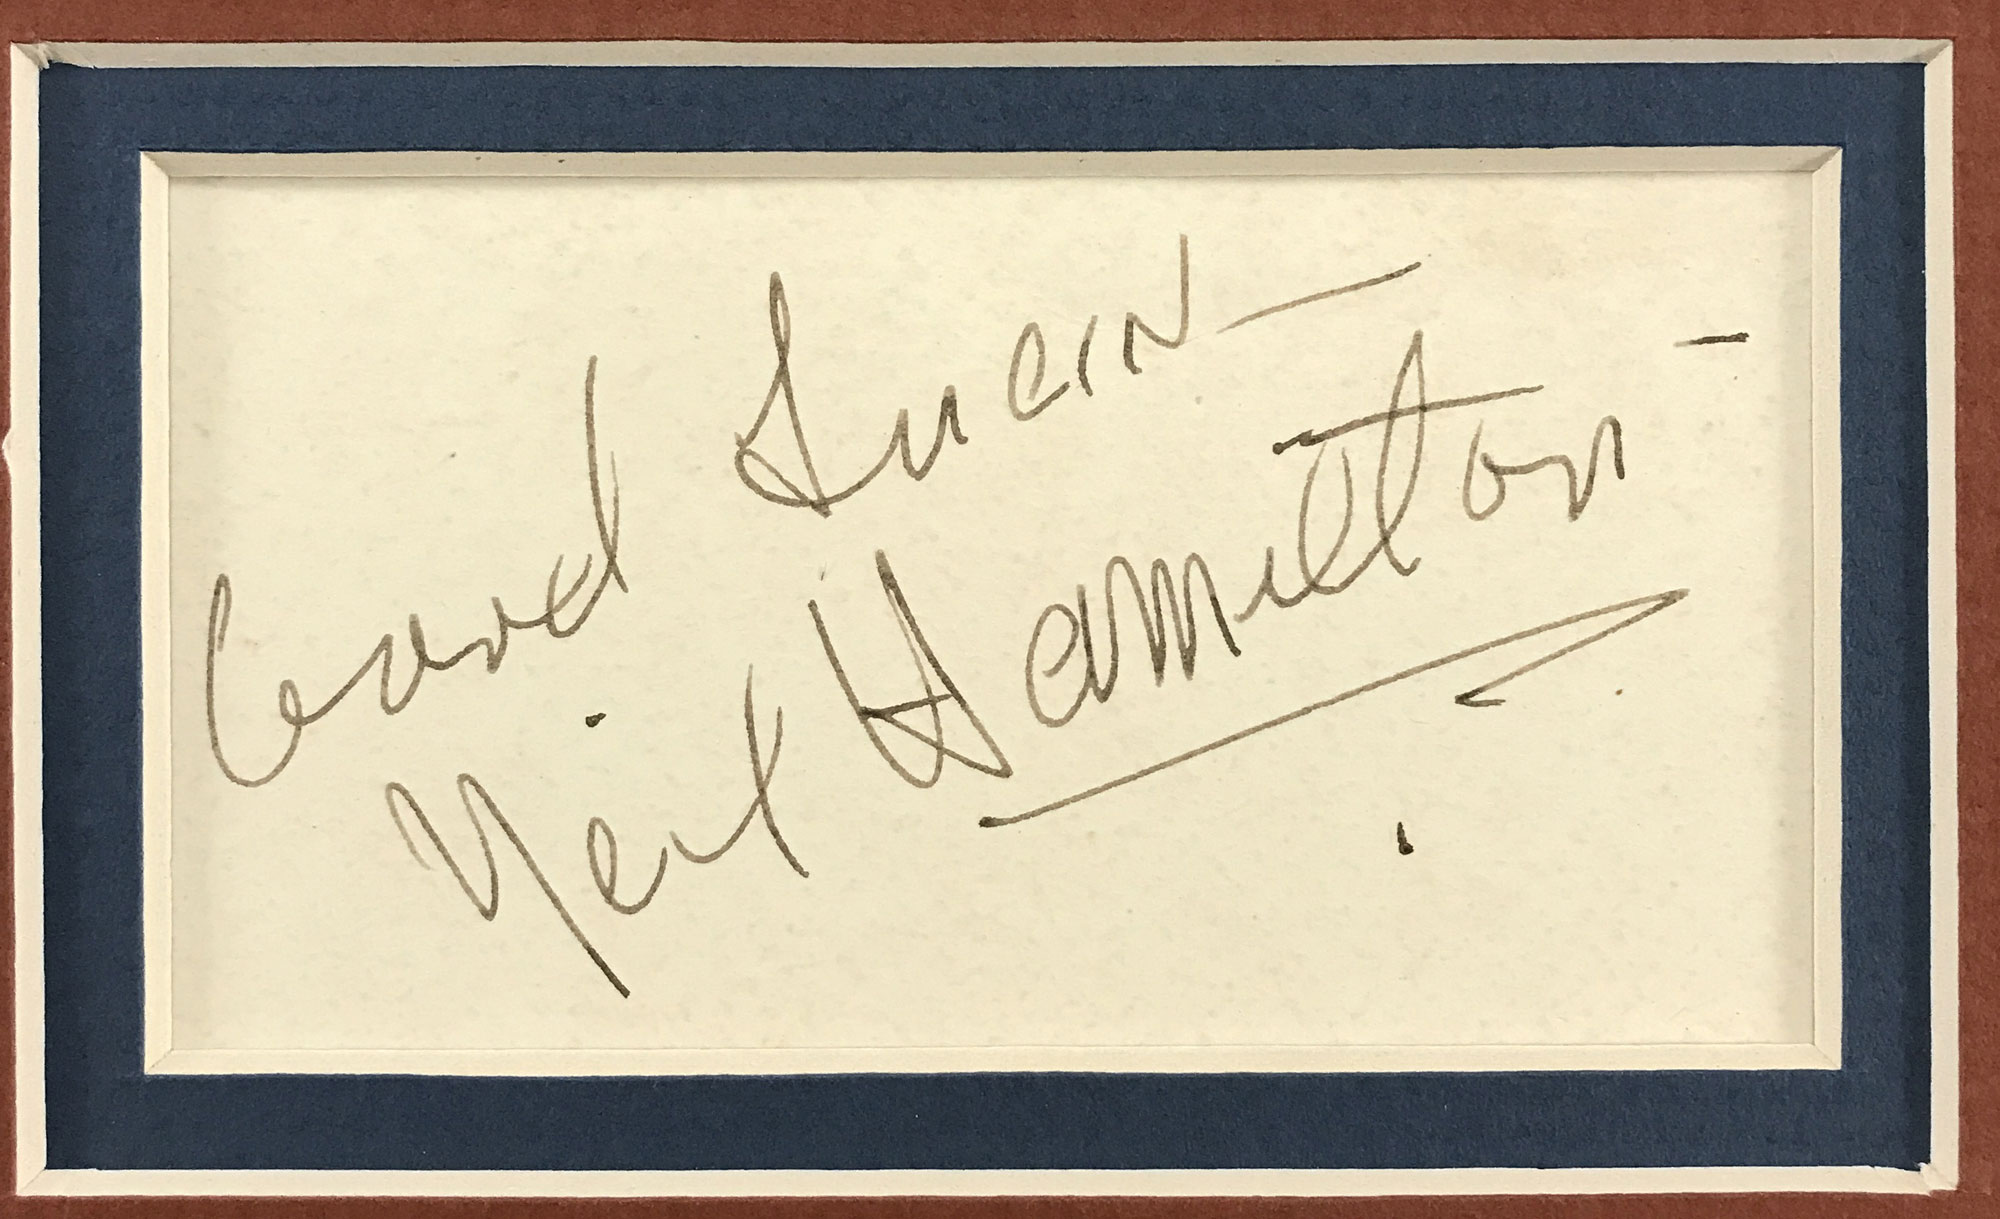 Good Luck
Neil Hamilton